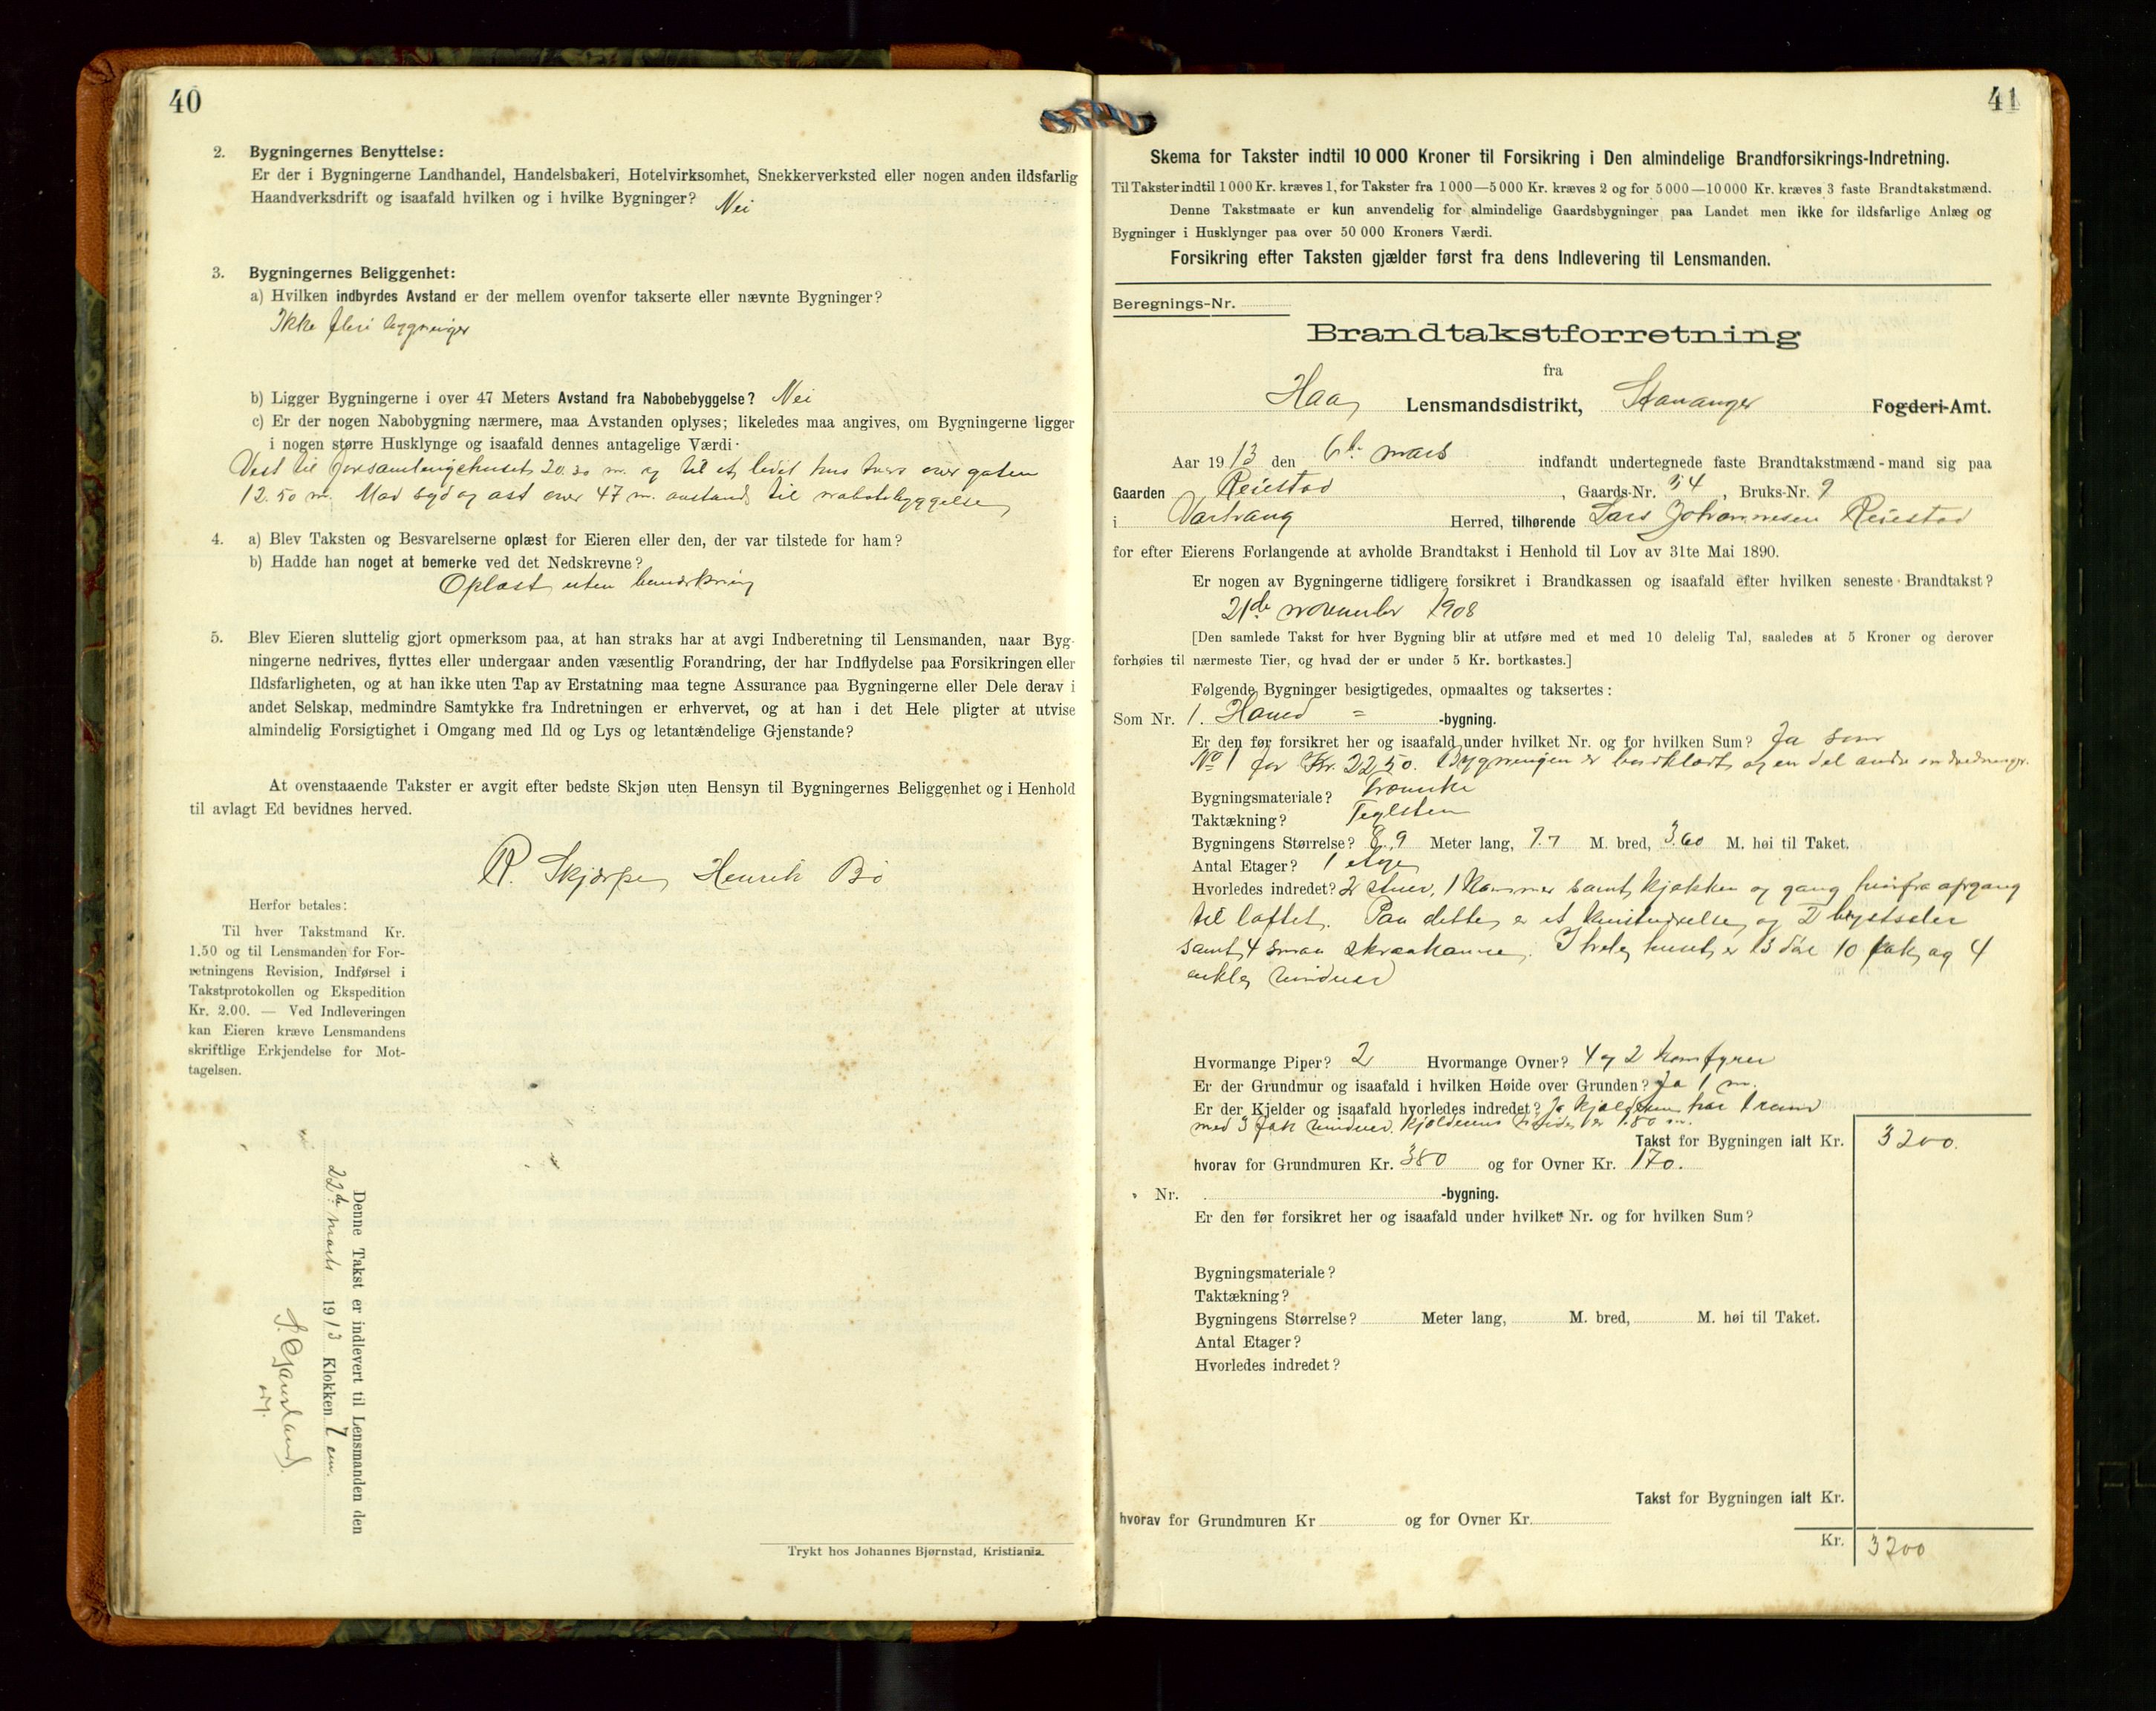 40
2. Bygningernes Benyttelse:
Er der i Bygningerne Landhandel, Handelsbakeri, Hotelvirksomhet, Snekkerverksted eller nogen anden ildsfarlig
Haandverksdrift og isaafald hvilken og i hvilke Bygninger? Nei
3. Bygningernes Beliggenhet:
a) Hvilken indbyrdes Avstand er der mellem ovenfor takserte eller nævnte Bygninger?
Ikke flere bygninger
b) Ligger Bygningerne i over 47 Meters Avstand fra Nabobebyggelse? Nei
c) Er der nogen Nabobygning nærmere, maa Avstanden oplyses; likeledes maa angives, om Bygningerne ligger
i nogen større Husklynge og isaafald dennes antagelige Værdi.
Vest til forsamlingshuset 20.30 m. og til et lidet hus tvers over gaten
12.50 m. Mod syd og ost over 47 m. avstand til nabobebyggelse
4. a) Blev Taksten og Besvarelserne oplæst for Eieren eller den, der var tilstede for ham?
b) Hadde han noget at bemerke ved det Nedskrevne?
Oplæst uten bemerkning
5. Blev Eieren sluttelig gjort opmerksom paa, at han straks har at avgi Indberetning til Lensmanden, naar Byg-
ningerne nedrives, flyttes eller undergaar anden væsentlig Forandring, der har Indflydelse paa Forsikringen eller
Ildsfarligheten, og at han ikke uten Tap av Erstatning maa tegne Assurance paa Bygningerne eller Dele derav i
andet Selskap, medmindre Samtykke fra Indretningen er erhvervet, og at han i det Hele pligter at utvise
almindelig Forsigtighet i Omgang med Ild og Lys og letantændelige Gjenstande?
At ovenstaaende Takster er avgit efter bedste Skjøn uten Hensyn til Bygningernes Beliggenhet og i Henhold
til avlagt Ed bevidnes herved.
R. Skjærpe Henrik Bø
Herfor betales:
Til hver Takstmand Kr.
1.50 og til Lensmanden for For-
retningens Revision, Indførsel i
Takstprotokollen og Ekspedition
Kr. 2.00. — Ved Indleveringen
kan Eieren kræve Lensmandens
skriftlige Erkjendelse for Mot-
tagelsen.
Denne Takst er indlevert til Lensmanden den
22de marts 1913 Klokken 7 em.
Trykt hos Johannes Bjørnstad, Kristiania.
41
Skema for Takster indtil 10 000 Kroner til Forsikring i Den almindelige Brandforsikrings-Indretning.
Til Takster indtil 1000 Kr. kræves 1, for Takster fra 1000—5000 Kr. kræves 2 og for 5000—10000 Kr. kræves 3 faste Brandtakstmænd.
Denne Takstmaate er kun anvendelig for almindelige Gaardsbygninger paa Landet men ikke for ildsfarlige Anlæg og
Bygninger i Husklynger paa over 50 000 Kroners Værdi.
Forsikring efter Taksten gjælder først fra dens Indlevering til Lensmanden.
Beregnings-Nr.
Brandtakstforretning
fra
Haa Lensmandsdistrikt, Stavanger Fogderi-Amt.
Aar 1913 den 6te mars indfandt undertegnede faste Brandtakstmænd-mand sig paa
Gaarden Reiestad, Gaards-Nr. 34, Bruks-Nr. 9
i Varhaug Herred, tilhørende Lars Johannesen Reiestad
for efter Eierens Forlangende at avholde Brandtakst i Henhold til Lov av 31te Mai 1890.
Er nogen av Bygningerne tidligere forsikret i Brandkassen og isaafald efter hvilken seneste Brandtakst?
21de november 1908
[Den samlede Takst for hver Bygning blir at utføre med et med 10 delelig Tal, saaledes at 5 Kroner og derover
forhøies til nærmeste Tier, og hvad der er under 5 Kr. bortkastes.]
Følgende Bygninger besigtigedes, opmaaltes og taksertes:
Som Nr. 1. Hoved = -bygning.
Er den før forsikret her og isaafald under hvilket Nr. og for hvilken Sum? Ja som
No 1 for Kr. 2250. Bygningen er bordklædt og en del andre
Bygningsmateriale?
Taktækning? Teglsten
Bygningens Størrelse? 8.9 Meter lang, 7.7 M. bred, 3.60 M. høi til Taket.
Antal Etager? 1 etage
Hvorledes indredet? 2 stuer, 1 kammer samt kjøkken og gang hvorfra opgang
til loftet. Paa dette er et kvistværelse og 2
samt 4 smaa I hele huset er 13 dør 10 fak og 4
enkle vinduer
Hvormange Piper? 2 Hvormange Ovner? 4 og 2 komfyrer
Er der Grundmur og isaafald i hvilken Høide over Grunden? Ja 1 m.
Er der Kjelder og isaafald hvorledes indredet? Ja kjælderen har 1 rum
med 3 fak vinduer. Kjælderens høide er 1.80 m.
Takst for Bygningen ialt Kr. 3200.
hvorav for Grundmuren Kr. 380 og for Ovner Kr. 170.
Nr. -bygning.
Er den før forsikret her og isaafald under hvilket Nr. og for hvilken Sum?
Bygningsmateriale?
Taktækning?
Bygningens Størrelse? Meter lang, M. bred, M. høi til Taket.
Antal Etager?
Hvorledes indredet?
Takst for Bygningen ialt Kr.
hvorav for Grundmuren Kr og for Ovner Kr.
Kr. 3200